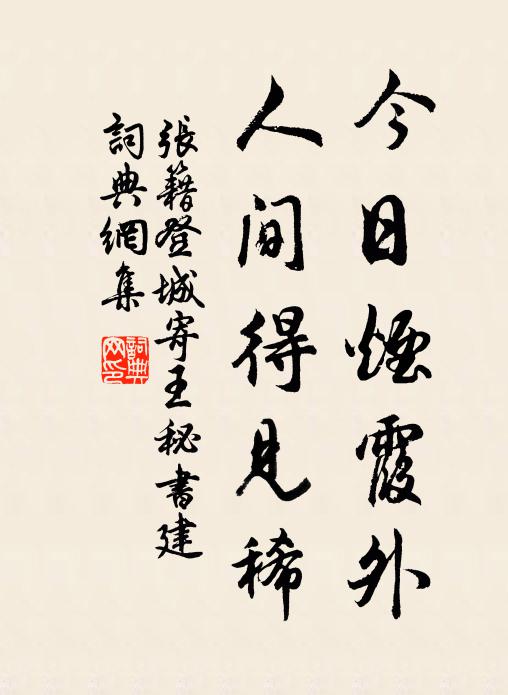 今日煙霞外
人間得見稀
張籍登城寄王秘書建
詞典網集
詞典網印